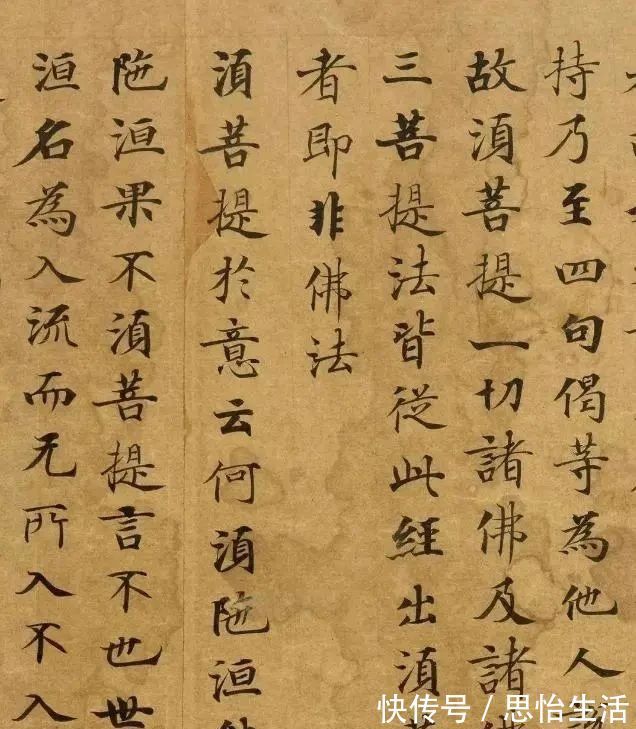 持乃至四句偈等為他人
故湏菩提一切諸佛及諸
三菩提法皆從此經出湏菩
者即非佛法
湏菩提於意云何湏陁洹
陁洹果不湏菩提言不也世
洹名為入流而无所入不入
快传号 / 思怡生活